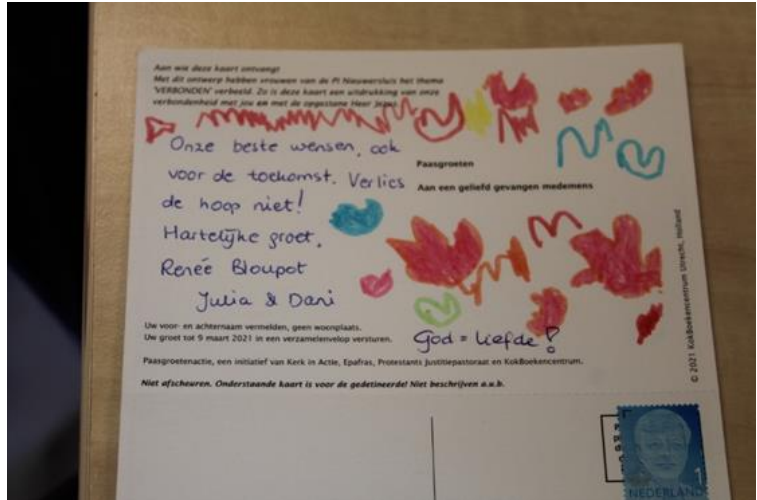 Aan wie deze kaart ontvangt
Met dit ontwerp hebben vrouwen van de PI Nieuwersluis het thema
'VERBONDEN' verbeeld. Zo is deze kaart een uitdrukking van onze
verbondenheid met jou en met de opgestane Heer Jezus.
Onze beste wensen, ook
voor de toekomst. Verlies
de hoop niet!
Hartelijke groet,
Renée Bloupot
Julia & Dani
Paasgroeten
Aan een geliefd gevangen medemens
God = liefde!
Uw voor- en achternaam vermelden, geen woonplaats.
Uw groet tot 9 maart 2021 in een verzamelenvelop versturen.
Paasgroetenactie, een initiatief van Kerk in Actie, Epafras, Protestants Justitiepastoraat en KokBoekencentrum.
Niet afscheuren. Onderstaande kaart is voor de gedetineerde! Niet beschrijven a.u.b.
© 2021 KokBoekencentrum Utrecht, Holland
NEDERLAND
1